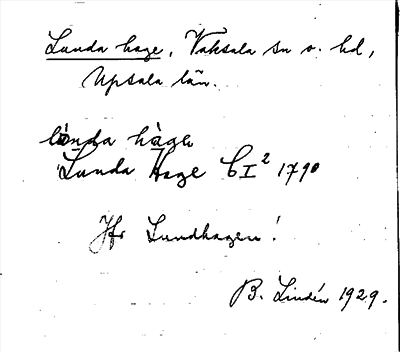 Lunda hage, Vaksala sn o. hd,
Upsala län.
lònda hàgen
Lunda Hage CI² 1790
Jfr Lundhagen!
B. Lindén 1929.